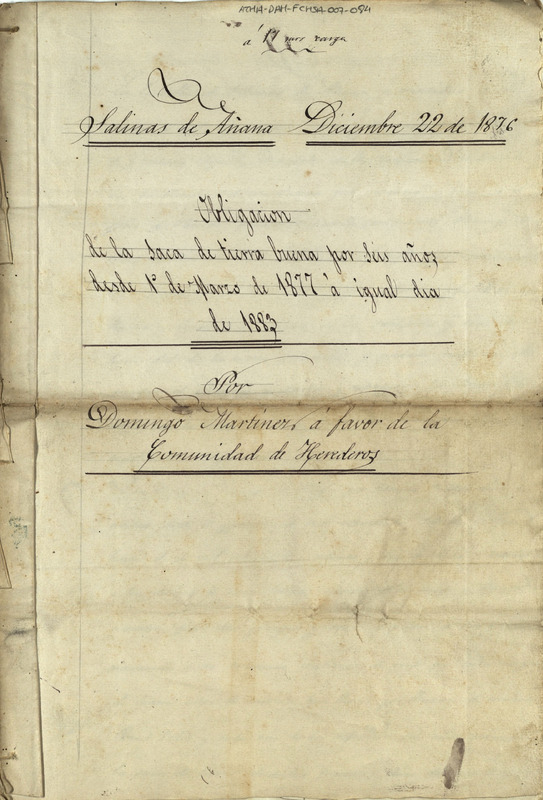 ATHA-DAH-FCHSA-007-084
á 17 mrs carga
Salinas de Añana Diciembre 22 de 1876
Obligacion
de la saca de tierra buena por seis años
desde 1º de Marzo de 1877 à igual dia
de 1883
Por
Domingo Martinez, á favor de la
Comunidad de Herederos